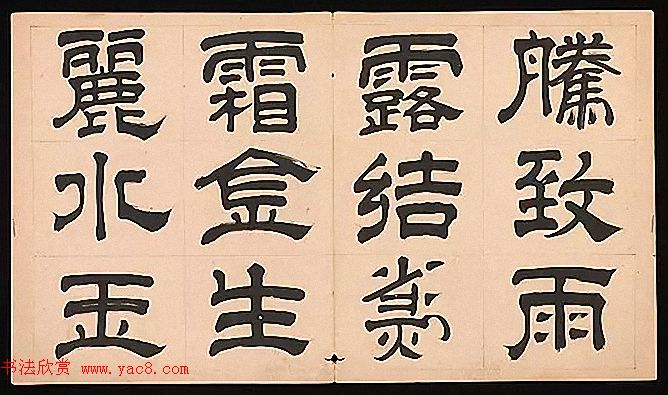 騰致雨
露結為
霜金生
麗水玉
书法欣赏 www.yac8.com